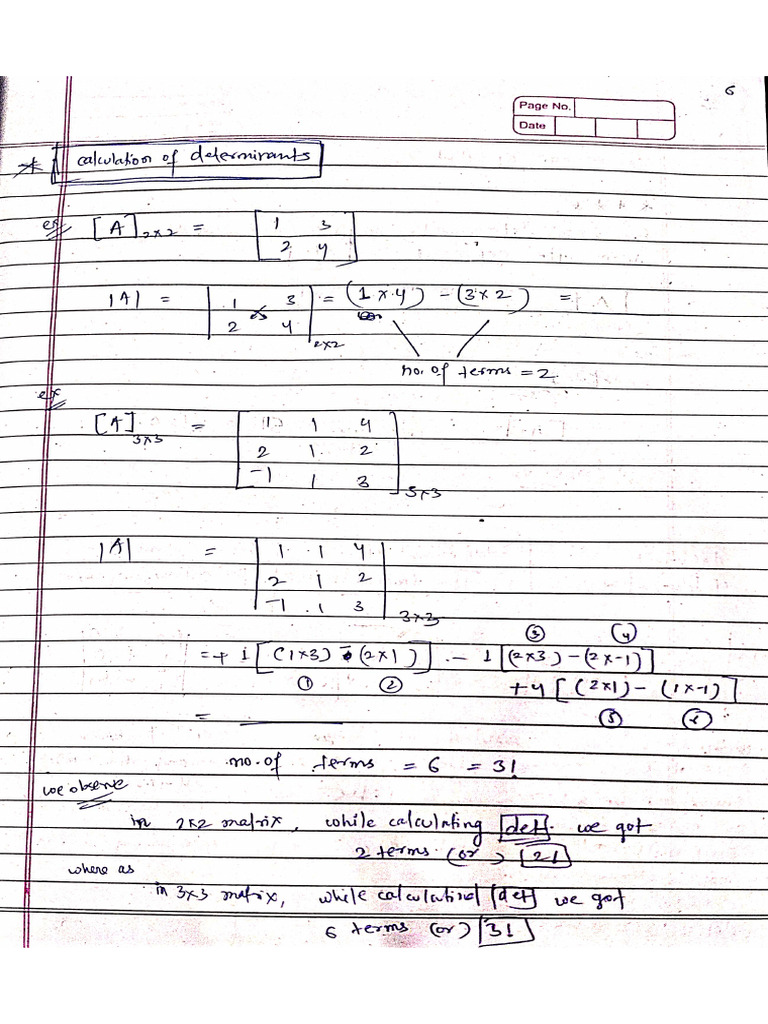 6
Page No.
Date
* calculation of determinants
eg [A]2×2 = [1 3
2 4]
|A| = |1 3
2 4|2×2 = (1×4) - (3×2) =
no. of terms = 2.
ex
[A]3×3 = [1 1 4
2 1 2
-1 1 3]3×3
|A| = |1 1 4
2 1 2
-1 1 3|3×3
③ ④
= + 1[(1×3) - (2×1)] - 1[(2×3) - (2×-1)]
① ②
+4[(2×1) - (1×-1)]
⑤ ⑥
=
no. of terms = 6 = 3!
we observe
in 2×2 matrix, while calculating det. we got
2 terms (or) 2!
where as
in 3×3 matrix, while calculating det we got
6 terms (or) 3!